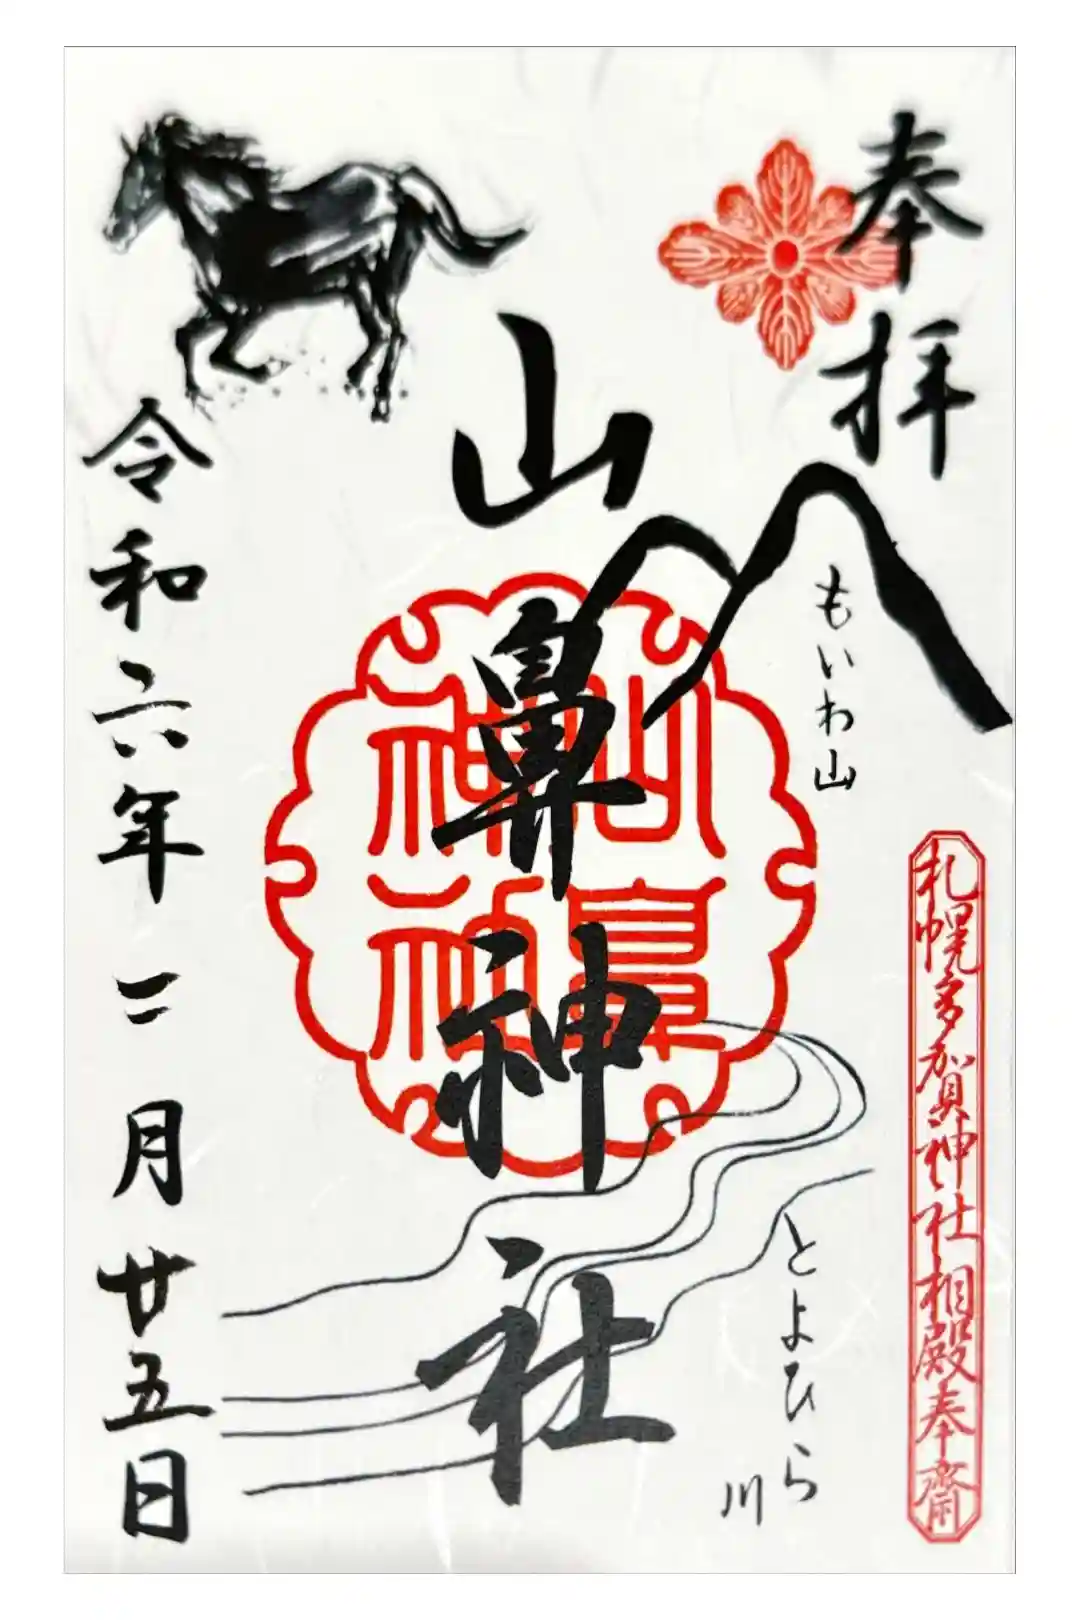 奉拝
もいわ山
札幌多賀神社相殿奉齋
とよひら
川
山鼻神社
山鼻
神社
令和六年二月廿五日